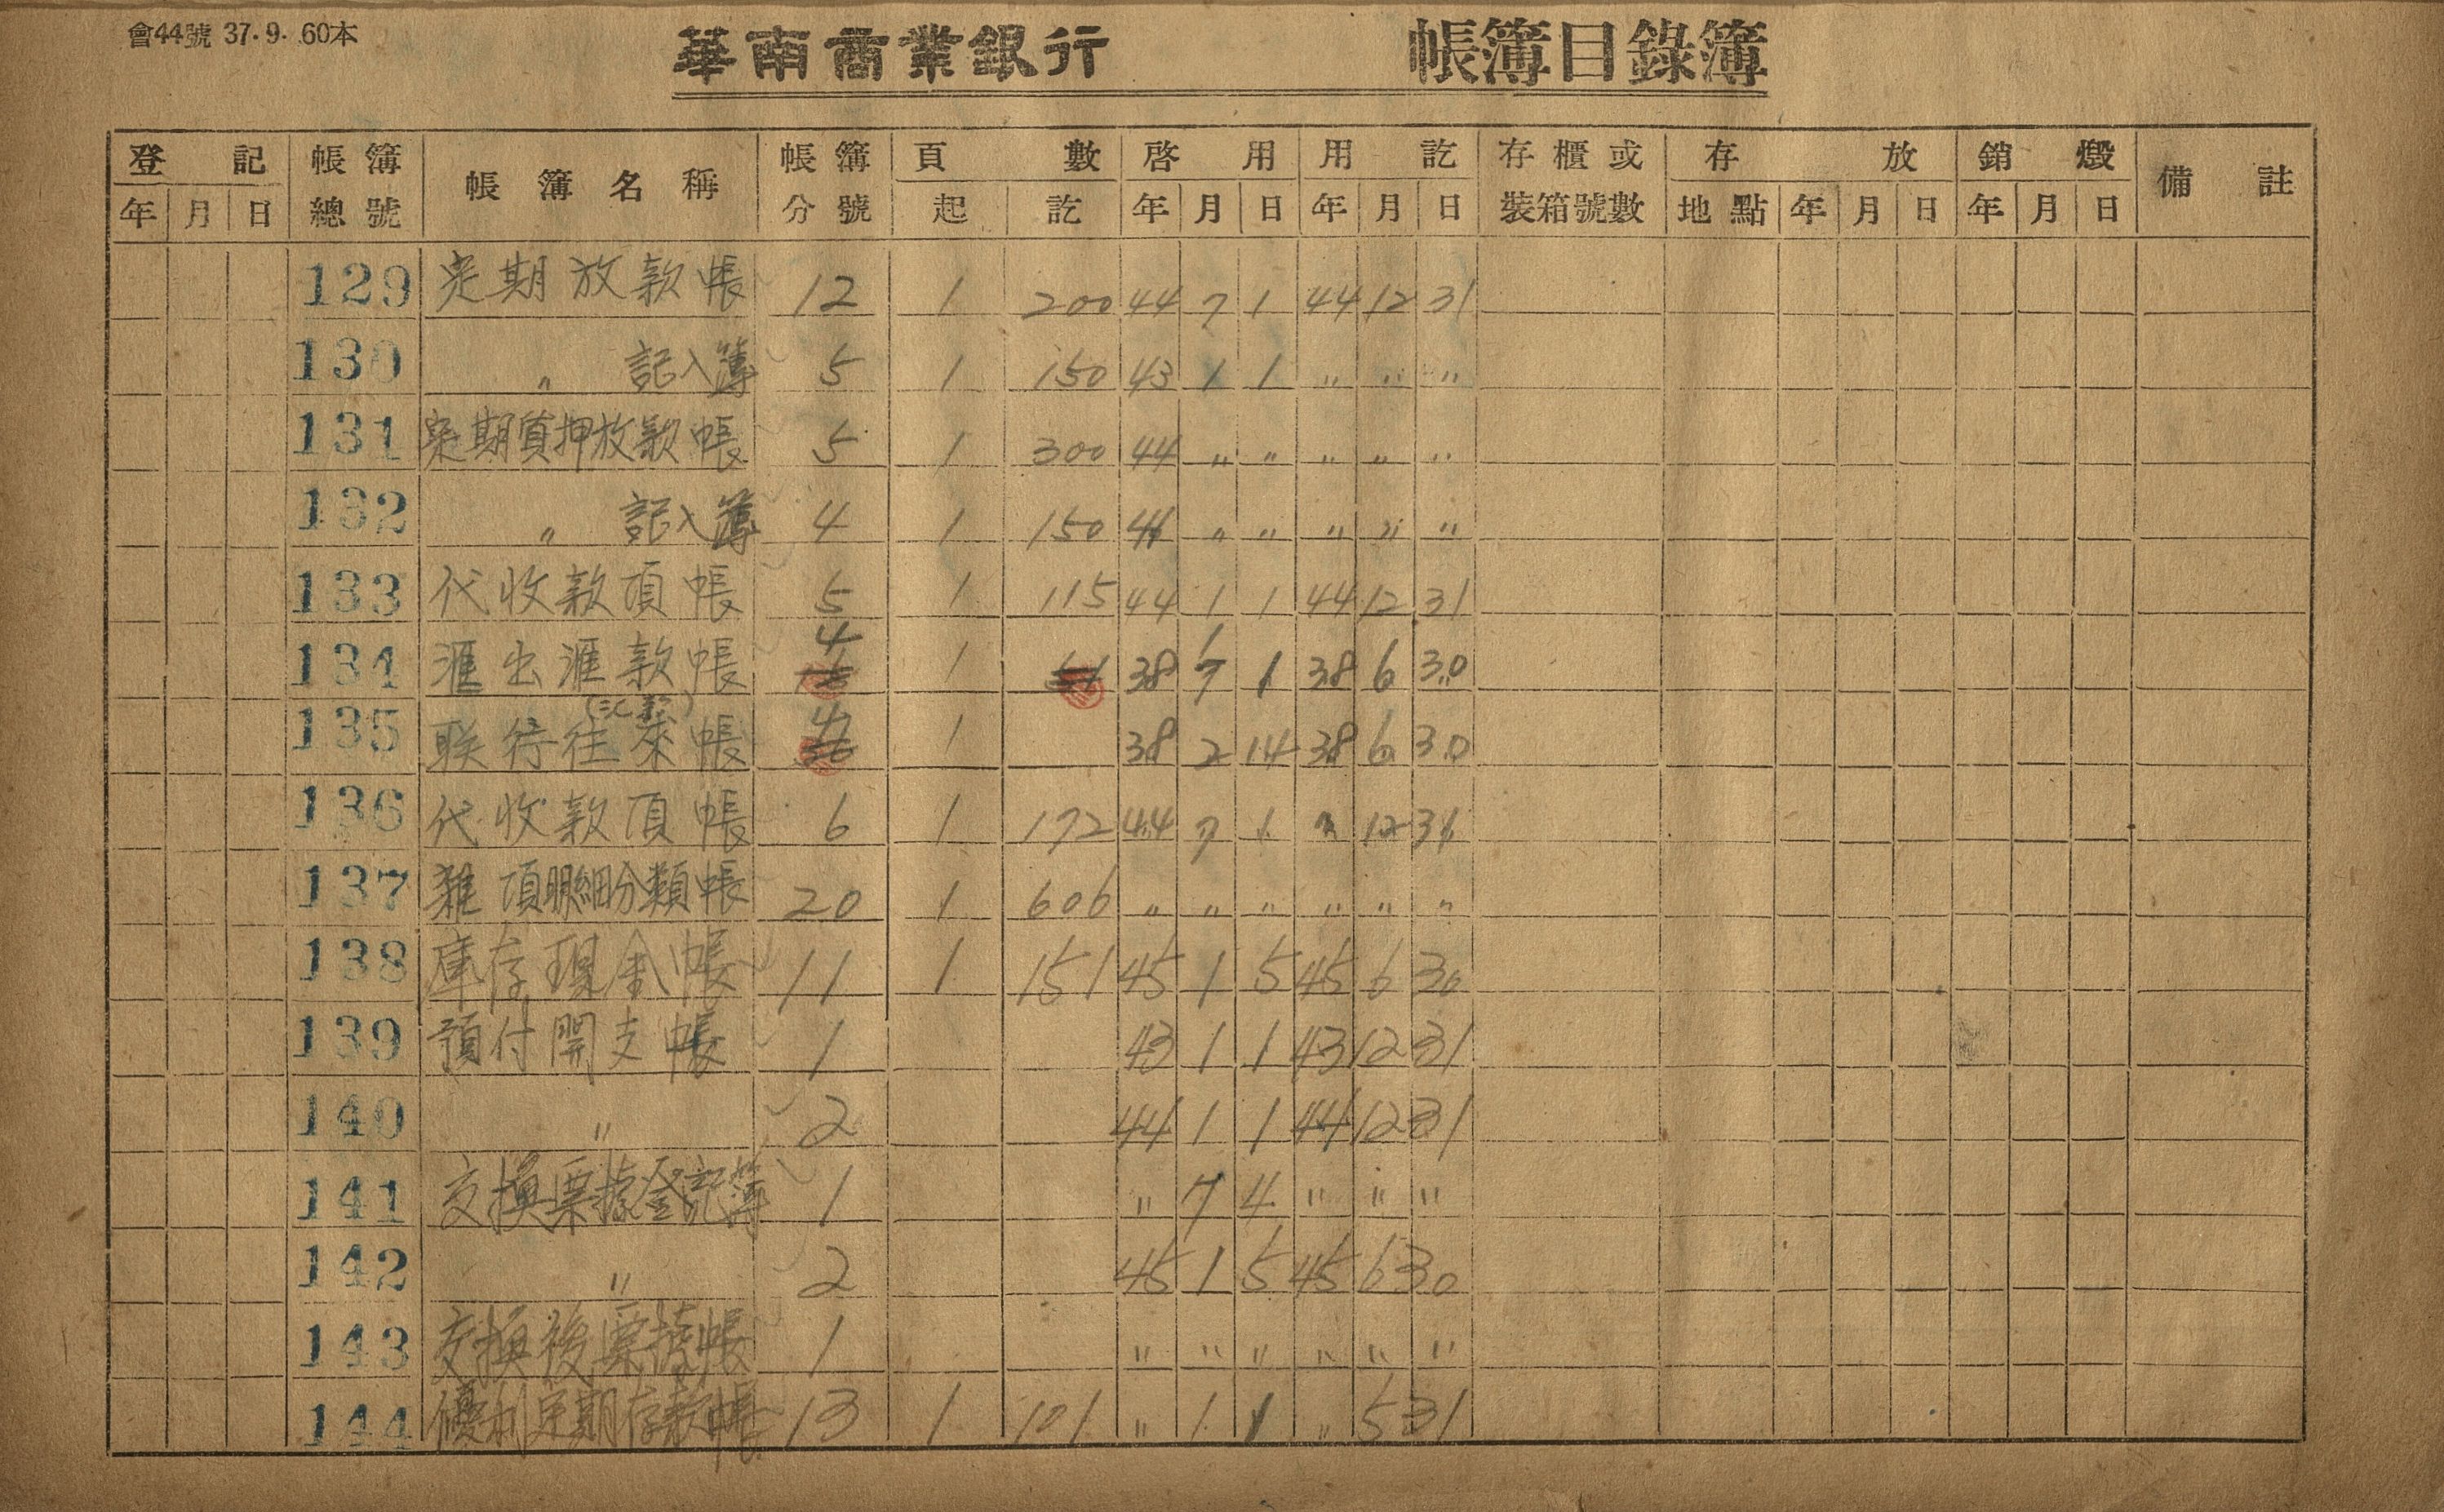 會44號 37.9. 60本
華南商業銀行 帳簿目錄簿
登記 帳簿 帳簿名稱 帳簿 頁數 啓用 用訖 存櫃或 存放 銷燬 備註
年 月 日 總號 分號 起 訖 年 月 日 年 月 日 裝箱號數 地點 年 月 日 年 月 日
129 定期放款帳 12 1 200 44 7 1 44 12 31
130 〃 記入簿 5 1 150 43 1 1 〃 〃 〃
131 定期質押放款帳 5 1 300 44 〃 〃 〃 〃 〃
132 〃 記入簿 4 1 150 44 〃 〃 〃 〃 〃
133 代收款項帳 5 1 115 44 1 1 44 12 31
134 滙出滙款帳 4 1 38 1 1 38 6 30
135 联行往來帳 4 1 38 2 14 38 6 30
136 代收款項帳 6 1 172 44 7 1 〃 12 31
137 雜項明細分類帳 20 1 606 〃 〃 〃 〃 〃 〃
138 庫存現金帳 11 1 151 45 1 5 45 6 30
139 預付開支帳 1 43 1 1 43 12 31
140 〃 2 44 1 1 44 12 31
141 交換票據登記簿 1 〃 7 4 〃 〃 〃
142 〃 2 45 1 5 45 6 30
143 交換後票據帳 1 〃 〃 〃 〃 〃 〃
144 優利定期存款帳 13 1 101 〃 1 1 〃 5 31